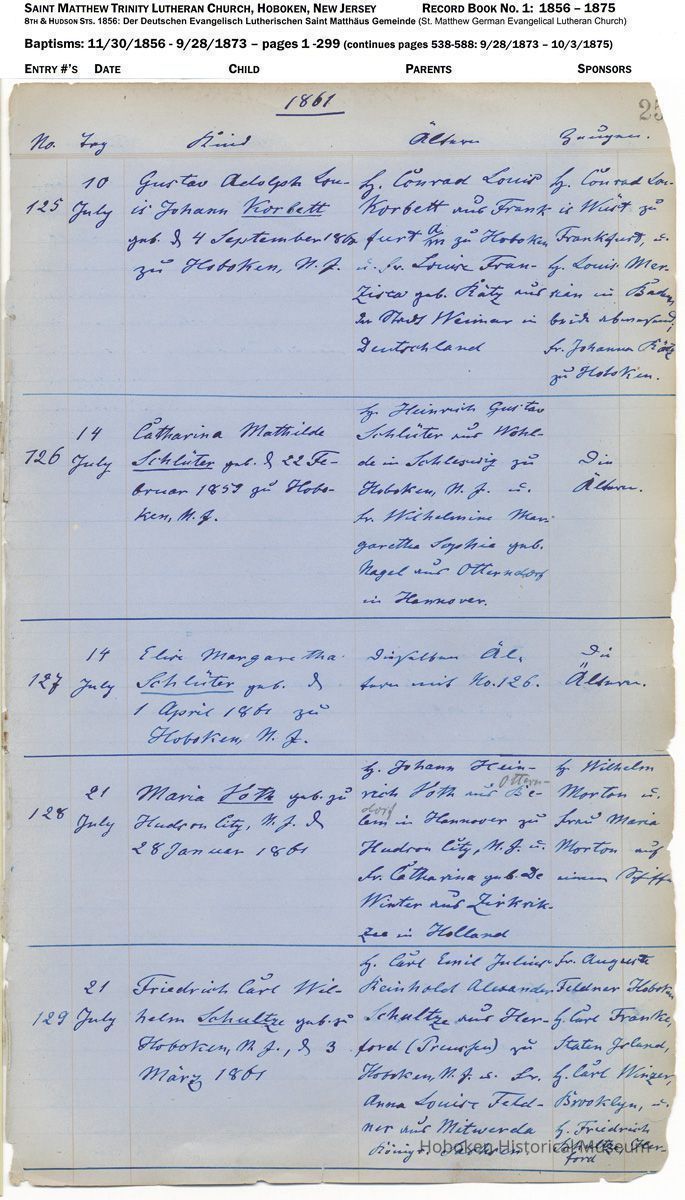 SAINT MATTHEW TRINITY LUTHERAN CHURCH, HOBOKEN, NEW JERSEY RECORD BOOK NO. 1: 1856 – 1875
8TH & HUDSON STS. 1856: Der Deutschen Evangelisch Lutherischen Saint Matthäus Gemeinde (St. Matthew German Evangelical Lutheran Church)
Baptisms: 11/30/1856 - 9/28/1873 – pages 1 -299 (continues pages 538-588: 9/28/1873 – 10/3/1875)
ENTRY #'S DATE CHILD PARENTS SPONSORS
1861
25
No. Tag Kind Ältern Zeugen.
125
10
July
Gustav Adolph Lou-
is Johann Korbett
geb. d. 4 September 186
zu Hoboken, N. J.
H. Conrad Louis
Korbett aus Frank
furt a/m zu Hoboken
u. Fr. Louise Fran-
zisca geb. Rätz aus
der Stadt Weimar in
Deutschland
H. Conrad Lou-
is Wüst zu
Frankfurt, u.
H. Louis Mer-
rian in Baden
beide abwesend,
Fr. Johanna Rätz
zu Hoboken.
126
14
July
Catharina Mathilde
Schlüter geb. d. 22 Fe-
bruar 1859 zu Hobo-
ken, N. J.
H. Heinrich Gustav
Schlüter aus Wohl-
de in Schleswig zu
Hoboken, N. J. u.
Fr. Wilhelmine Mar-
garetha Sophia geb.
Nagel aus Otterndorf
in Hannover.
Die
Ältern.
127
14
July
Elise Margaretha
Schlüter geb. d.
1 April 1861 zu
Hoboken, N. J.
Dieselben Äl-
tern mit No. 126.
Die
Ältern.
128
21
July
Maria Voth geb. zu
Hudson City, N. J. d.
28 Januar 1861
H. Johann Hein-
rich Voth aus
Ottern-
dorf
in Hannover zu
Hudson City, N. J. u.
Fr. Catharina geb. De
Winter aus Zirkrik-
zee in Holland
H. Wilhelm
Morton u.
Frau Maria
Morton auf
einem Schiffe
129
21
July
Friedrich Carl Wil-
helm Schultze geb. zu
Hoboken, N. J., d. 3
März 1861
H. Carl Emil Julius
Reinhold Alexander
Schultze aus Her-
ford (Preussen) zu
Hoboken, N. J. u. Fr.
Anna Louise Feld-
ner aus Mitwerda
Königr.
Fr. Auguste
Feldner Hoboken
H. Carl Franke,
Staten Island,
H. Carl Winzer,
Brooklyn, u.
H. Friedrich
Schultze Her-
ford
Hoboken Historical Museum